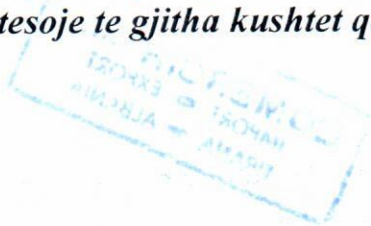 tesoje te gjitha kushtet q
EXPORT
TIRANA ALBANIA